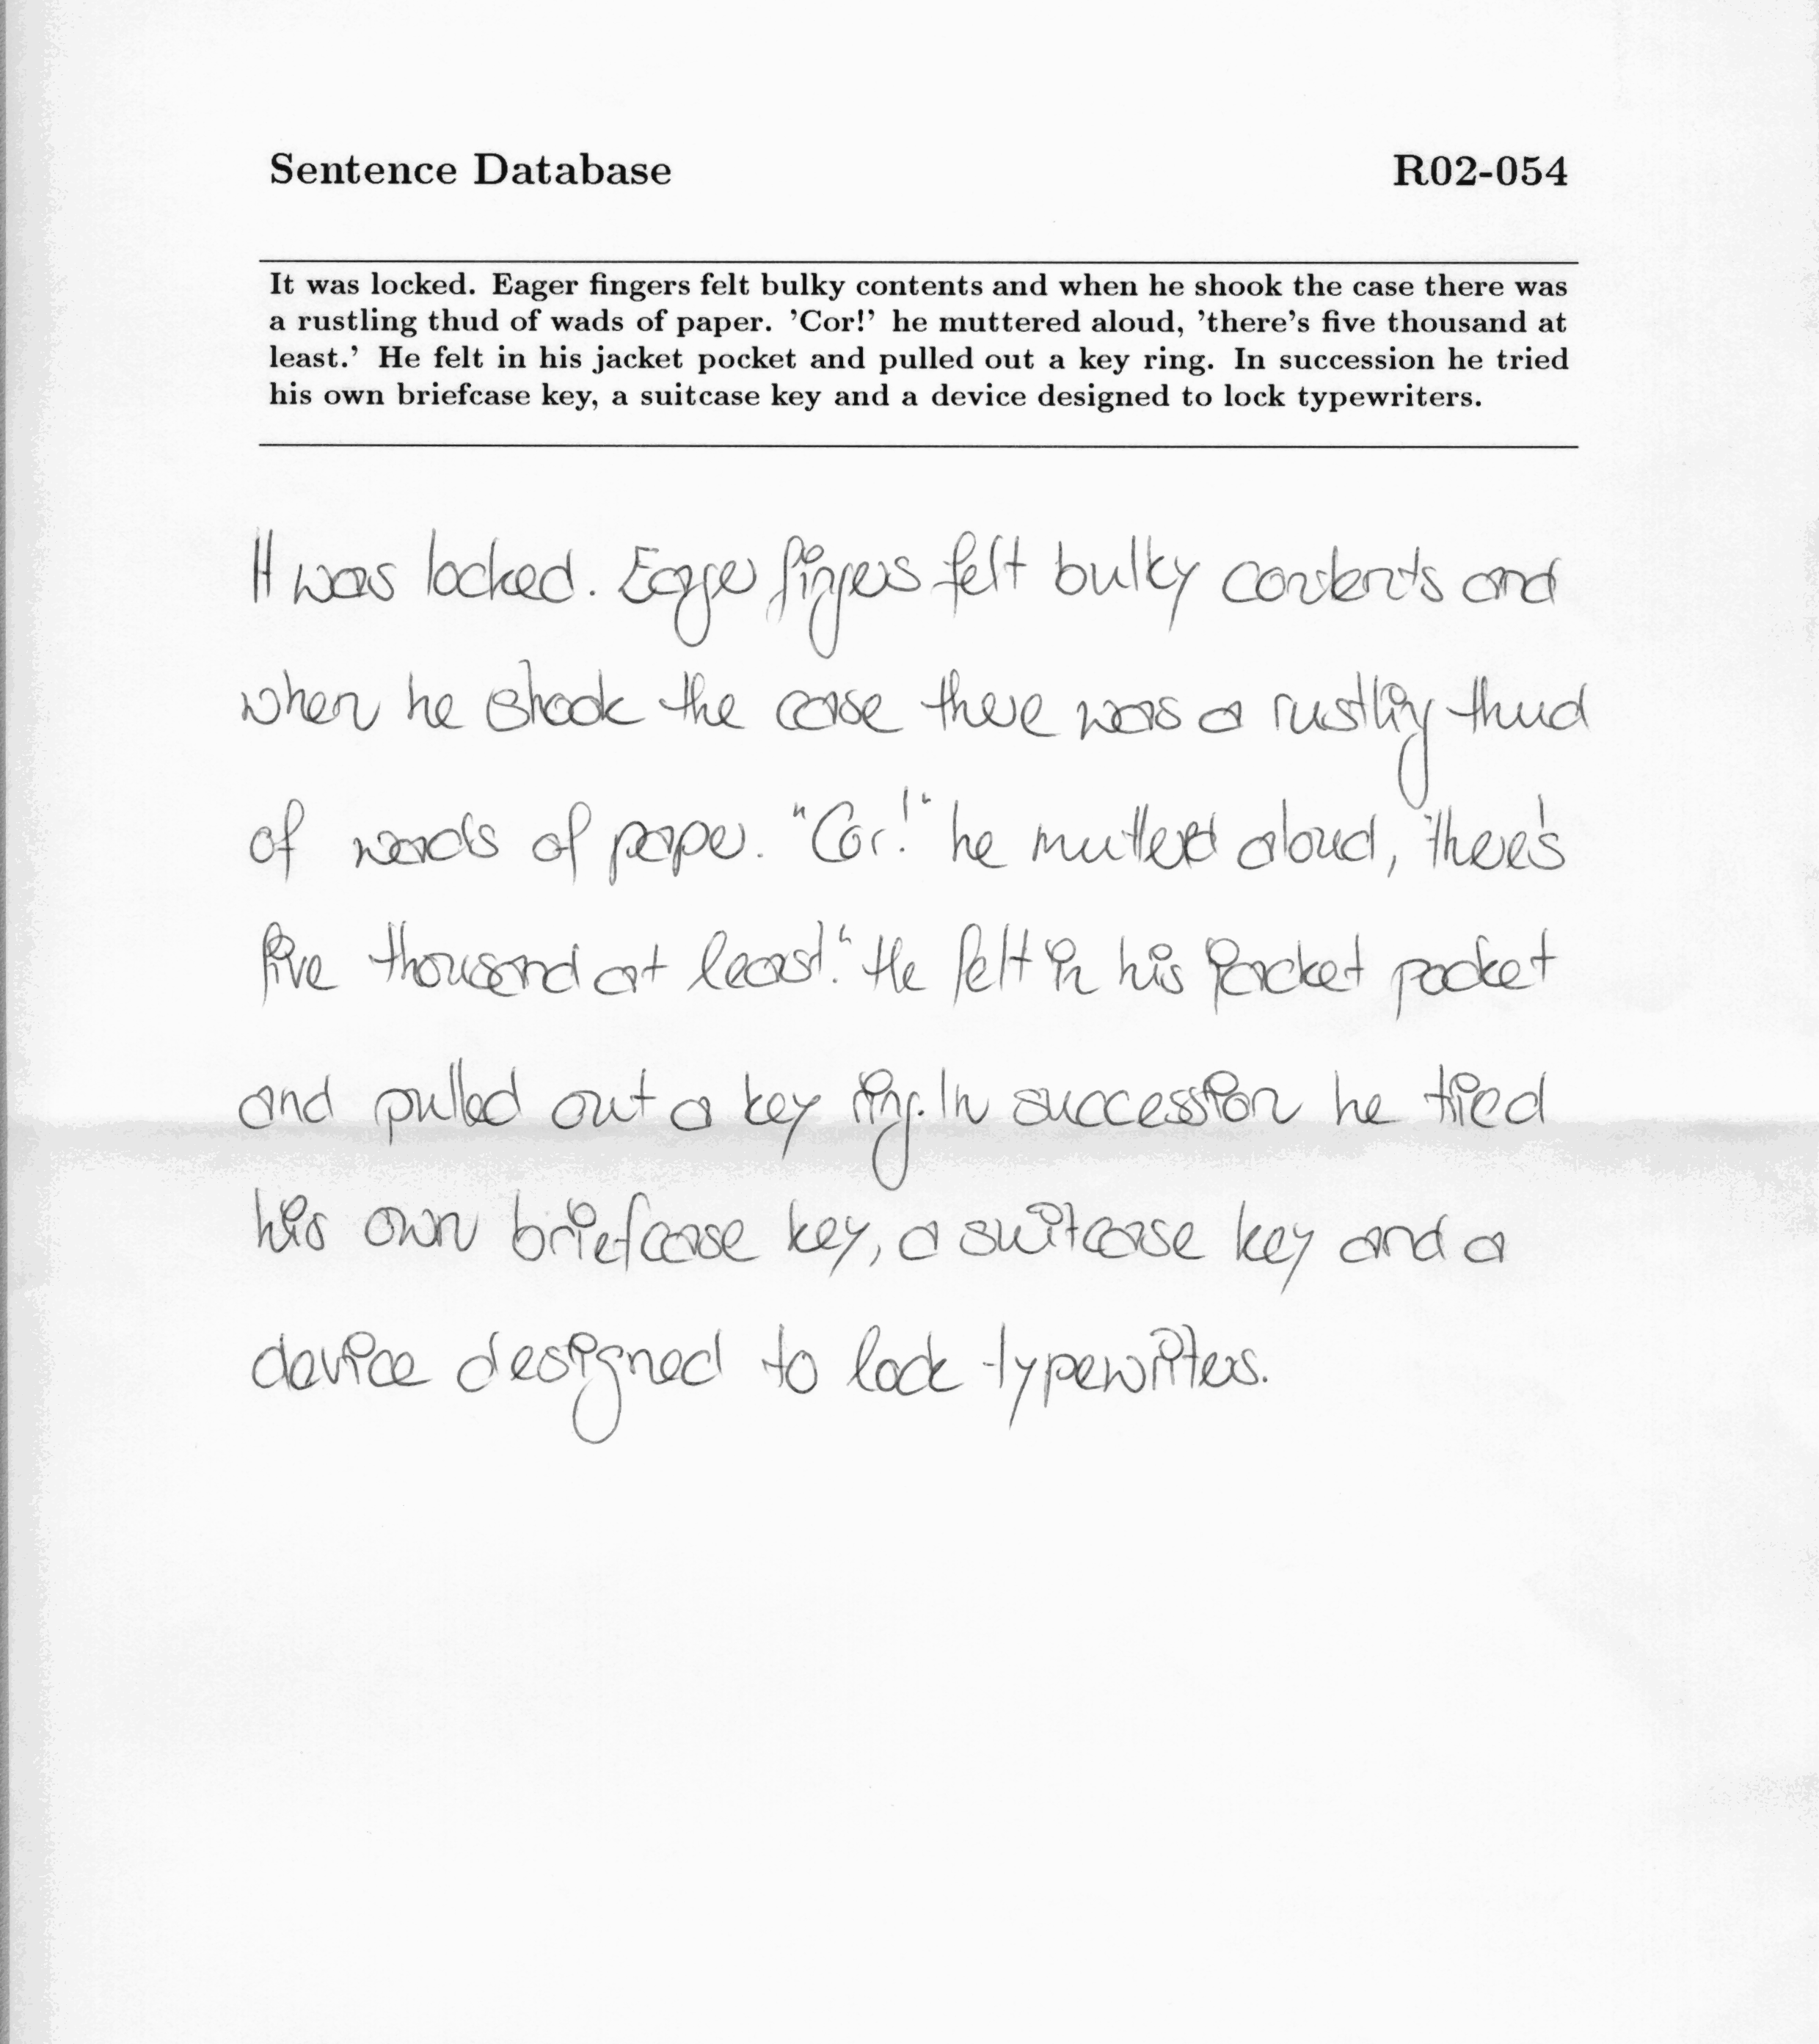 Sentence Database R02-054
It was locked. Eager fingers felt bulky contents and when he shook the case there was
a rustling thud of wads of paper. 'Cor!' he muttered aloud, 'there's five thousand at
least.' He felt in his jacket pocket and pulled out a key ring. In succession he tried
his own briefcase key, a suitcase key and a device designed to lock typewriters.
It was locked. Eager fingers felt bulky contents and
when he shook the case there was a rustling thud
of wads of paper. "Cor!" he muttered aloud, "there's
five thousand at least." He felt in his jacket pocket
and pulled out a key ring. In succession he tried
his own briefcase key, a suitcase key and a
device designed to lock typewriters.